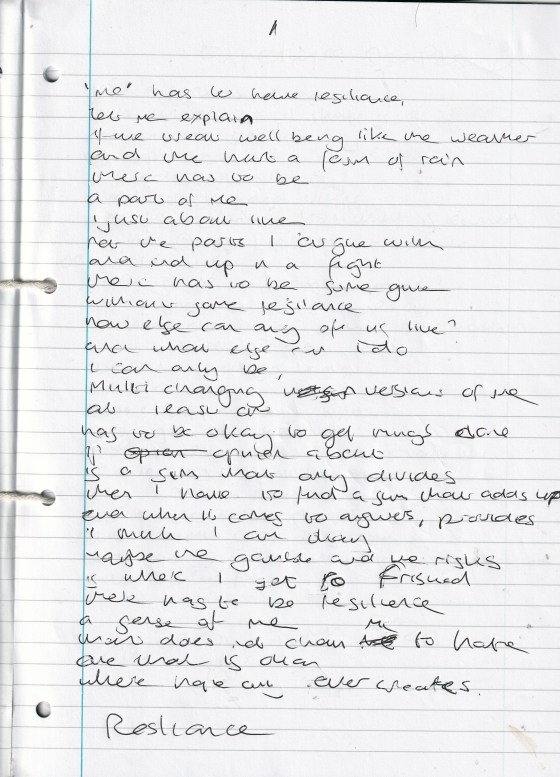 1
'me' has to have resiliance,
let me explain
if we wear well being like the weather
and the hurt a form of rain
there has to be
a part of me
i just about like
not the parts I argue with
and end up in a fight
there has to be some give
without some resilance
how else can any of us live?
and what else can i do
i can only be,
Multi changing versions of me
at least one
has to be okay to get things done
If opinion about
is a sum that only divides
then I have to find a sum that adds up
and when it comes to answers, provides
I think I am okay
maybe the gamble and the risks
is where I get finished
there has to be resilience
a sense of me
that does not chain me to hate
one that is
where hope any ever creates.
Resliance